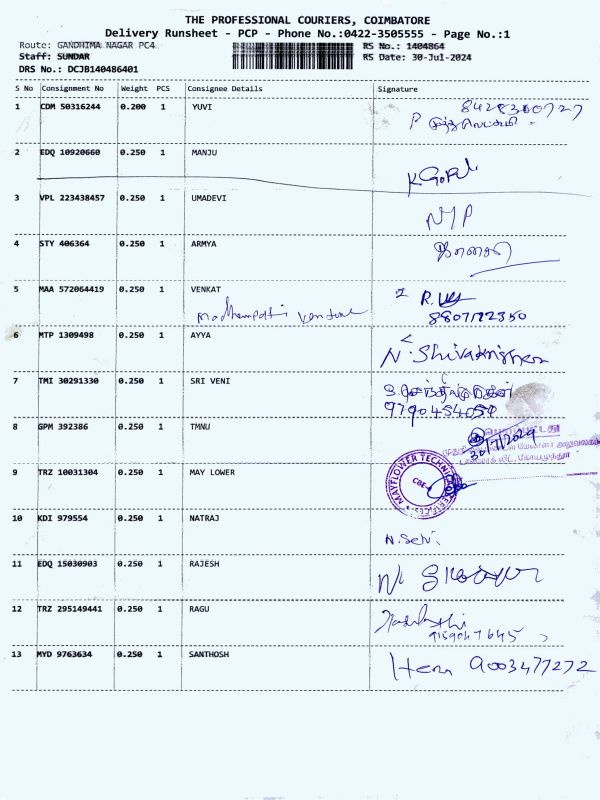 THE PROFESSIONAL COURIERS, COIMBATORE
Delivery Runsheet - PCP - Phone No.:0422-3505555 - Page No.:1
Route: GANDHIMA NAGAR PC4 RS No.: 1404864
Staff: SUNDAR RS Date: 30-Jul-2024
DRS No.: DCJB140486401
S No Consignment No Weight PCS Consignee Details Signature
1 CDM 50316244 0.200 1 YUVI
2 EDQ 10920660 0.250 1 MANJU
K Gopal
3 VPL 223438457 0.250 1 UMADEVI
4 STY 406364 0.250 1 ARMYA
5 MAA 572064419 0.250 1 VENKAT
8807122350
6 MTP 1309498 0.250 1 AYYA
N. Shivakrishna
7 TMI 30291330 0.250 1 SRI VENI
9790454057
8 GPM 392386 0.250 1 TMNU
30/7/2029
9 TRZ 10031304 0.250 1 MAY LOWER
MAYFLOWER TECHNIC
CBE-4
10 KDI 979554 0.250 1 NATRAJ
N. Selvi
11 EDQ 15030903 0.250 1 RAJESH
12 TRZ 295149441 0.250 1 RAGU
9159047645
13 MYD 9763634 0.250 1 SANTHOSH
Hem 9003477272